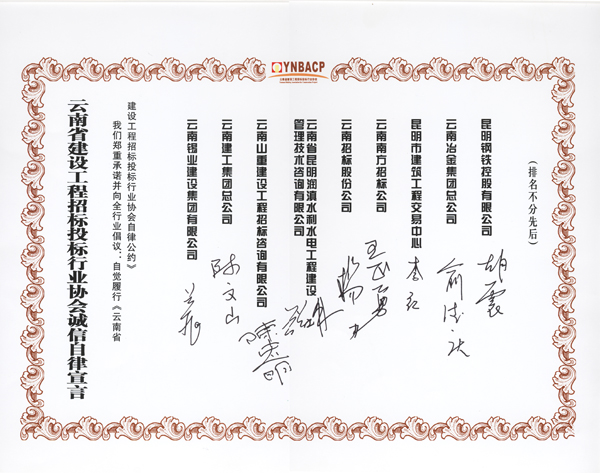 OYNBACP
云南省建设工程招标投标行业协会诚信自律宣言
我们郑重承诺并向全行业倡议：自觉履行《云南省
建设工程招标投标行业协会自律公约》
（排名不分先后）
昆明钢铁控股有限公司
胡震
云南冶金集团总公司
昆明市建筑工程交易中心
云南南方招标公司
云南招标股份公司
云南省昆明润滇水利水电工程建设
管理技术咨询有限公司
云南山重建设工程招标咨询有限公司
云南建工集团总公司
陈文山
云南锡业建设集团有限公司